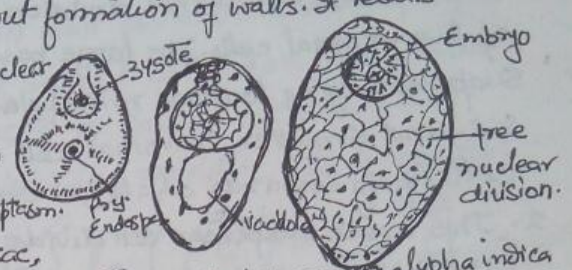 out formation of walls. It results
clear
zygote
Embryo
free
nuclear
division.
plasm.
Pry.
Endosp
vacuole
ac,
alypha indica